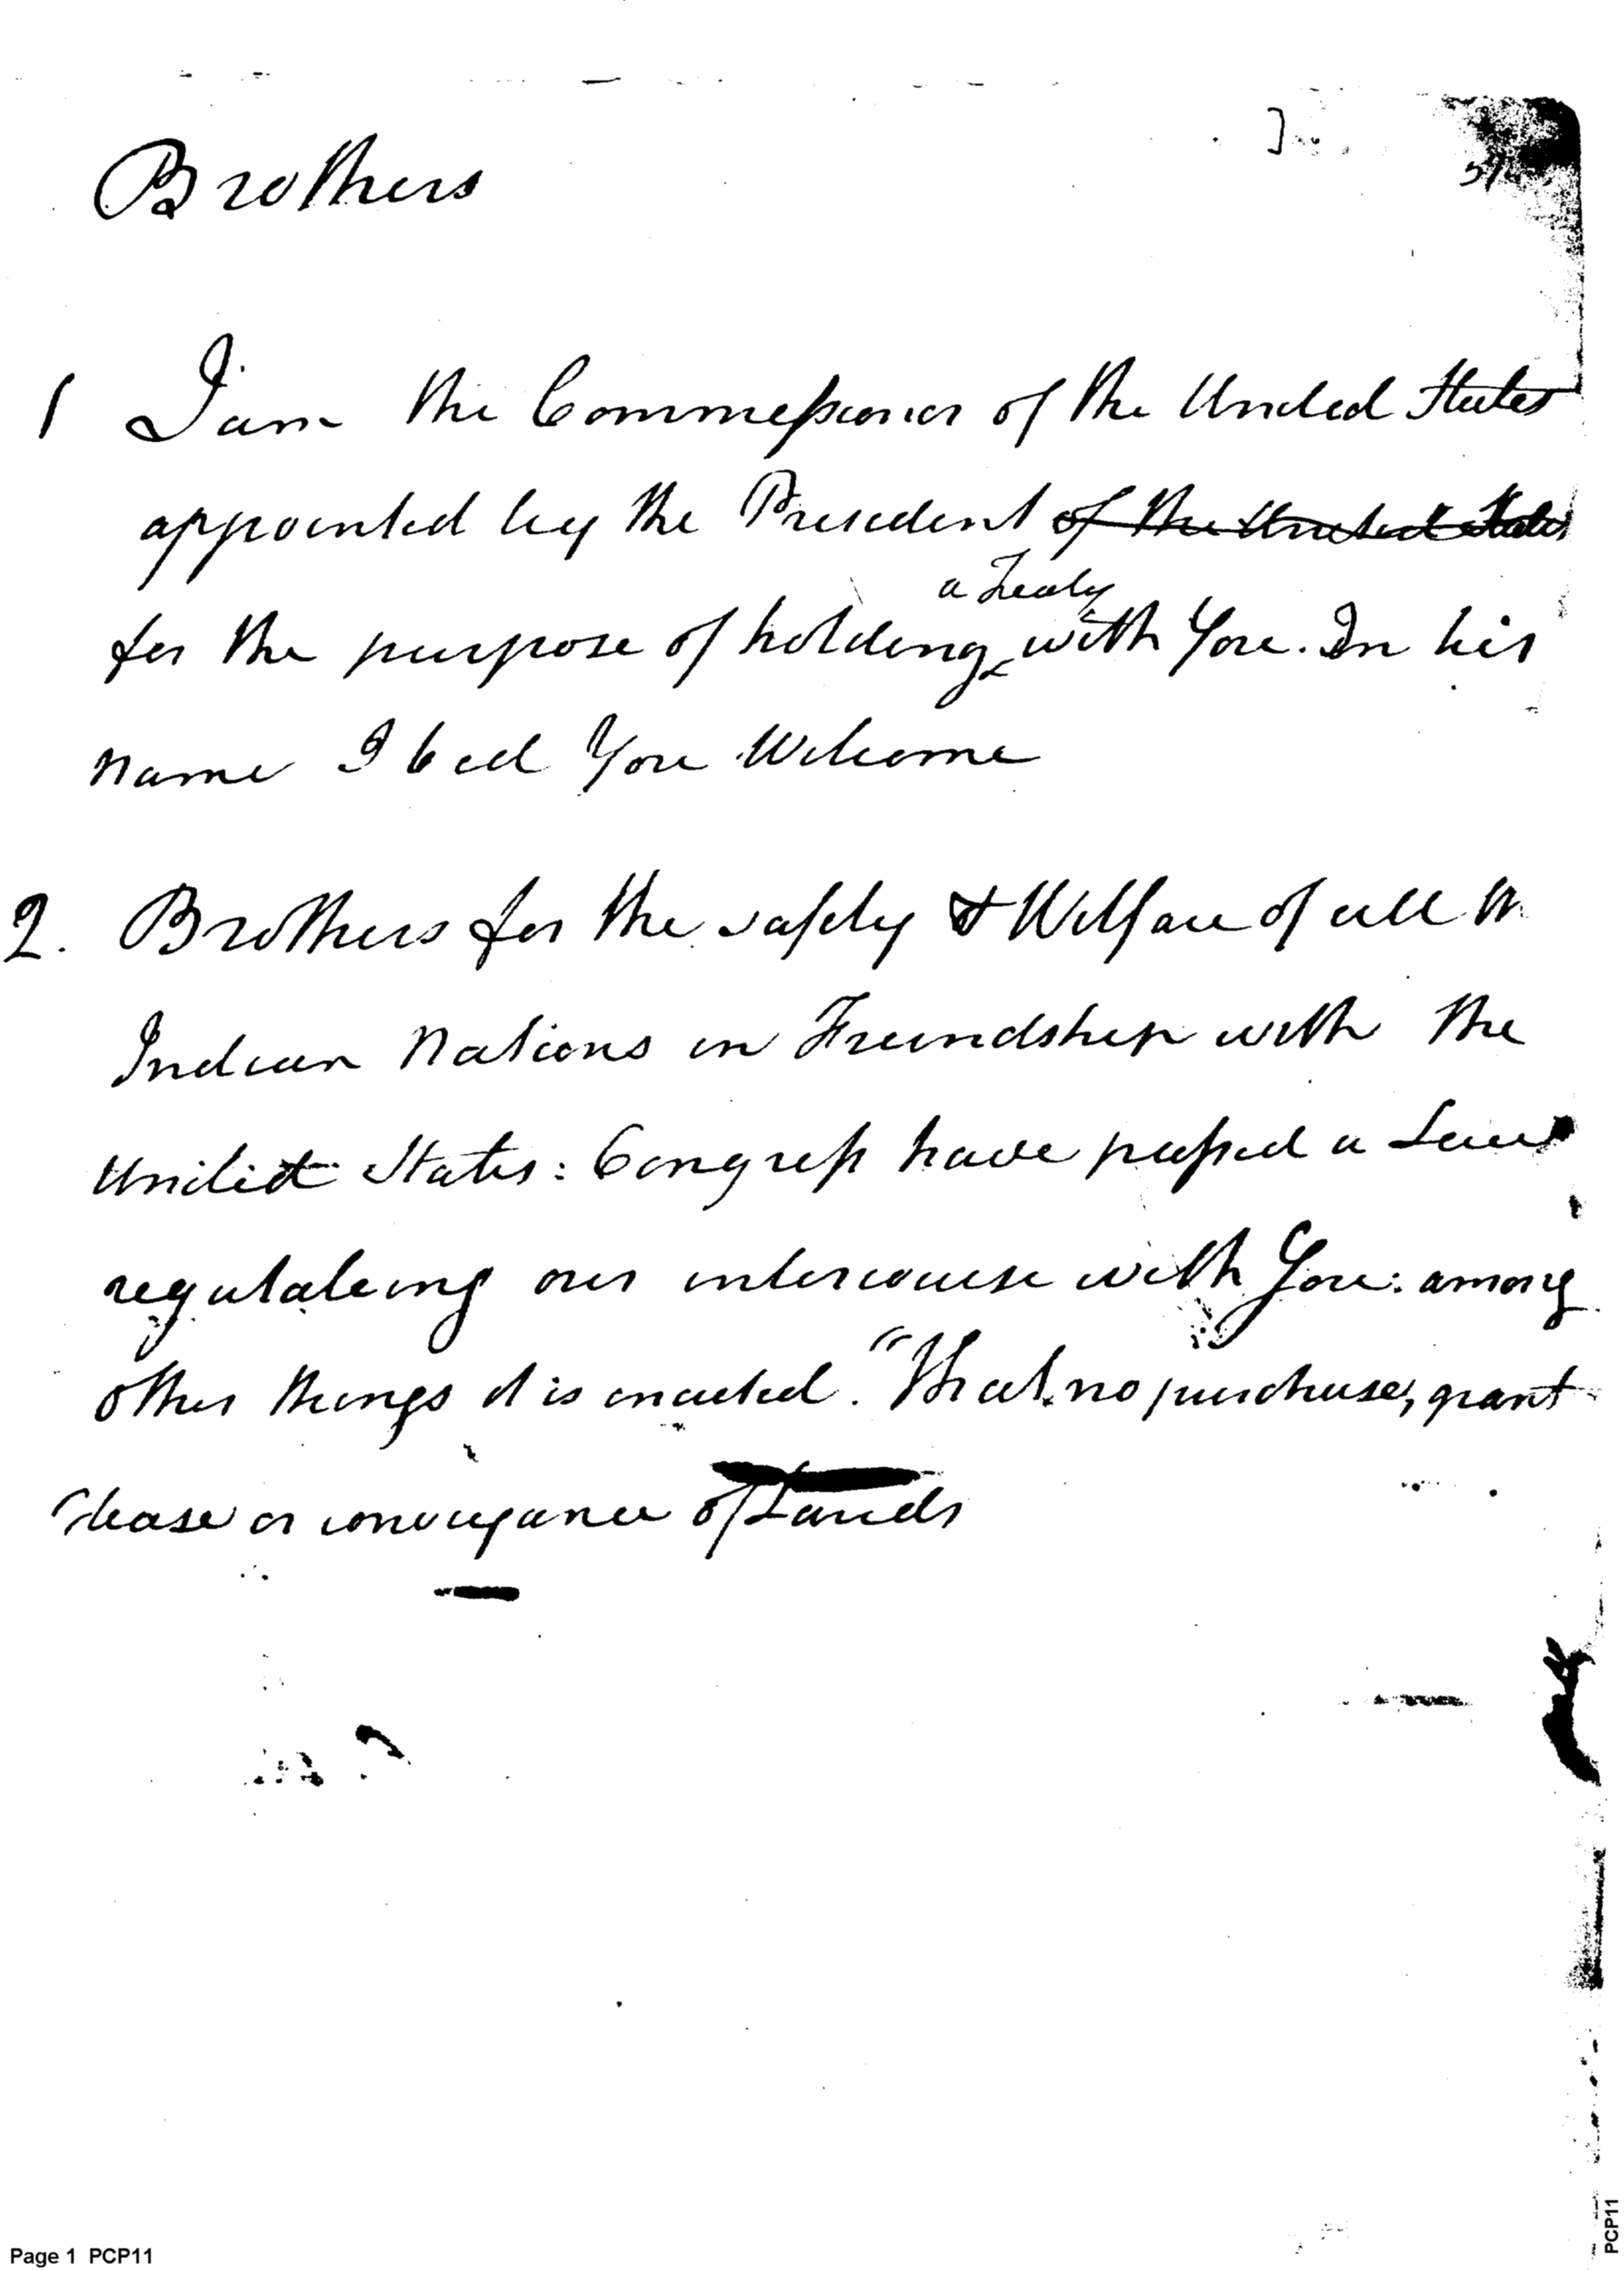 Brothers
1 I am the Commessioner of the United States
appointed by the President of the United States
a Treaty
for the purpose of holding with You. In his
name I bid You Welcome
2. Brothers for the safety & Welfare of all th
Indian Nations in Friendship with the
United States: Congress have passed a Law
regulateing our intercourse with You: among
other things it is enacted. "That no purchase, grant
lease or conveyance of Lands
Page 1 PCP11
PCP11